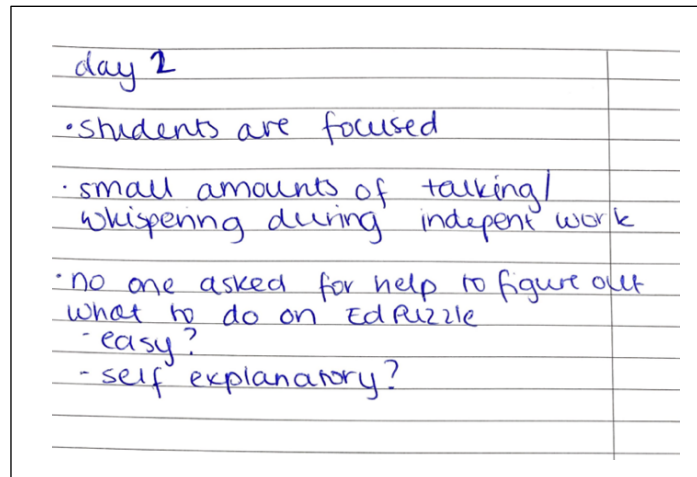 day 2
• students are focused
• small amounts of talking/
whispering during indepent work
• no one asked for help to figure out
what to do on EdPuzzle
- easy?
- self explanatory?